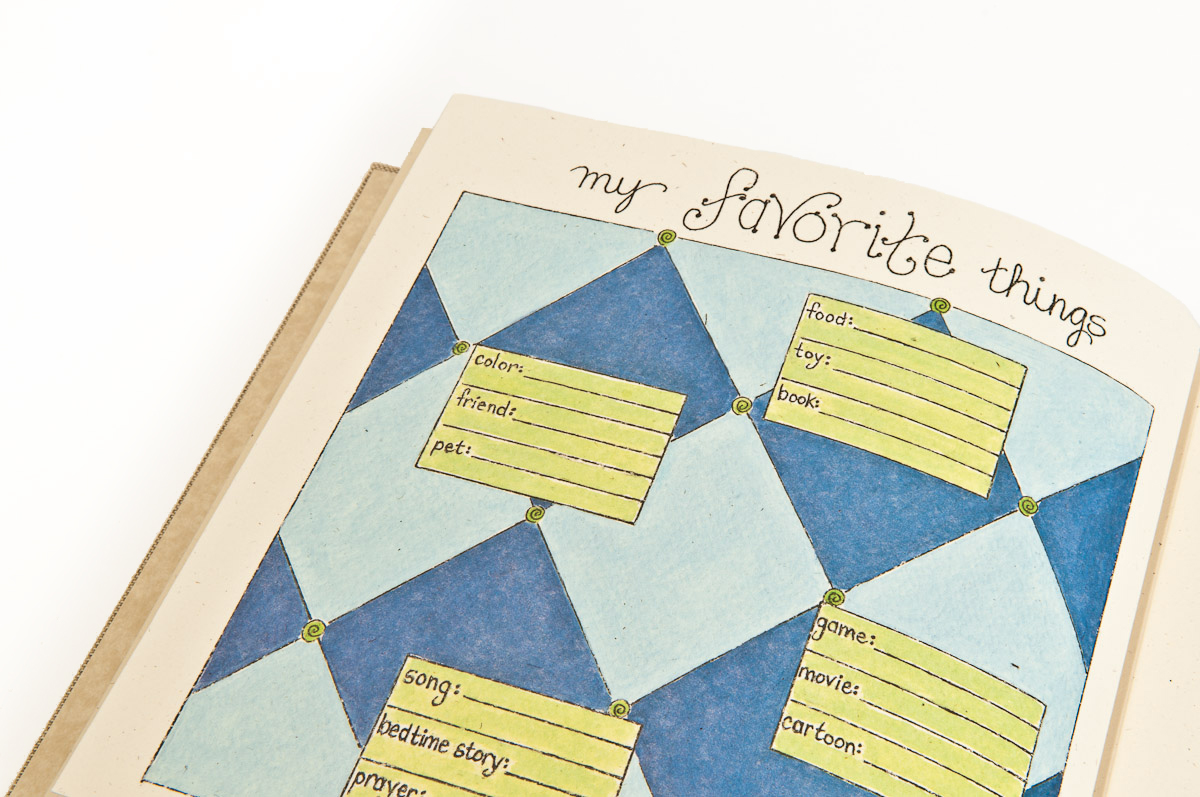 my favorite things
food:
toy:
book:
color:
friend:
pet:
game:
movie:
cartoon:
song:
bedtime story:
prayer: